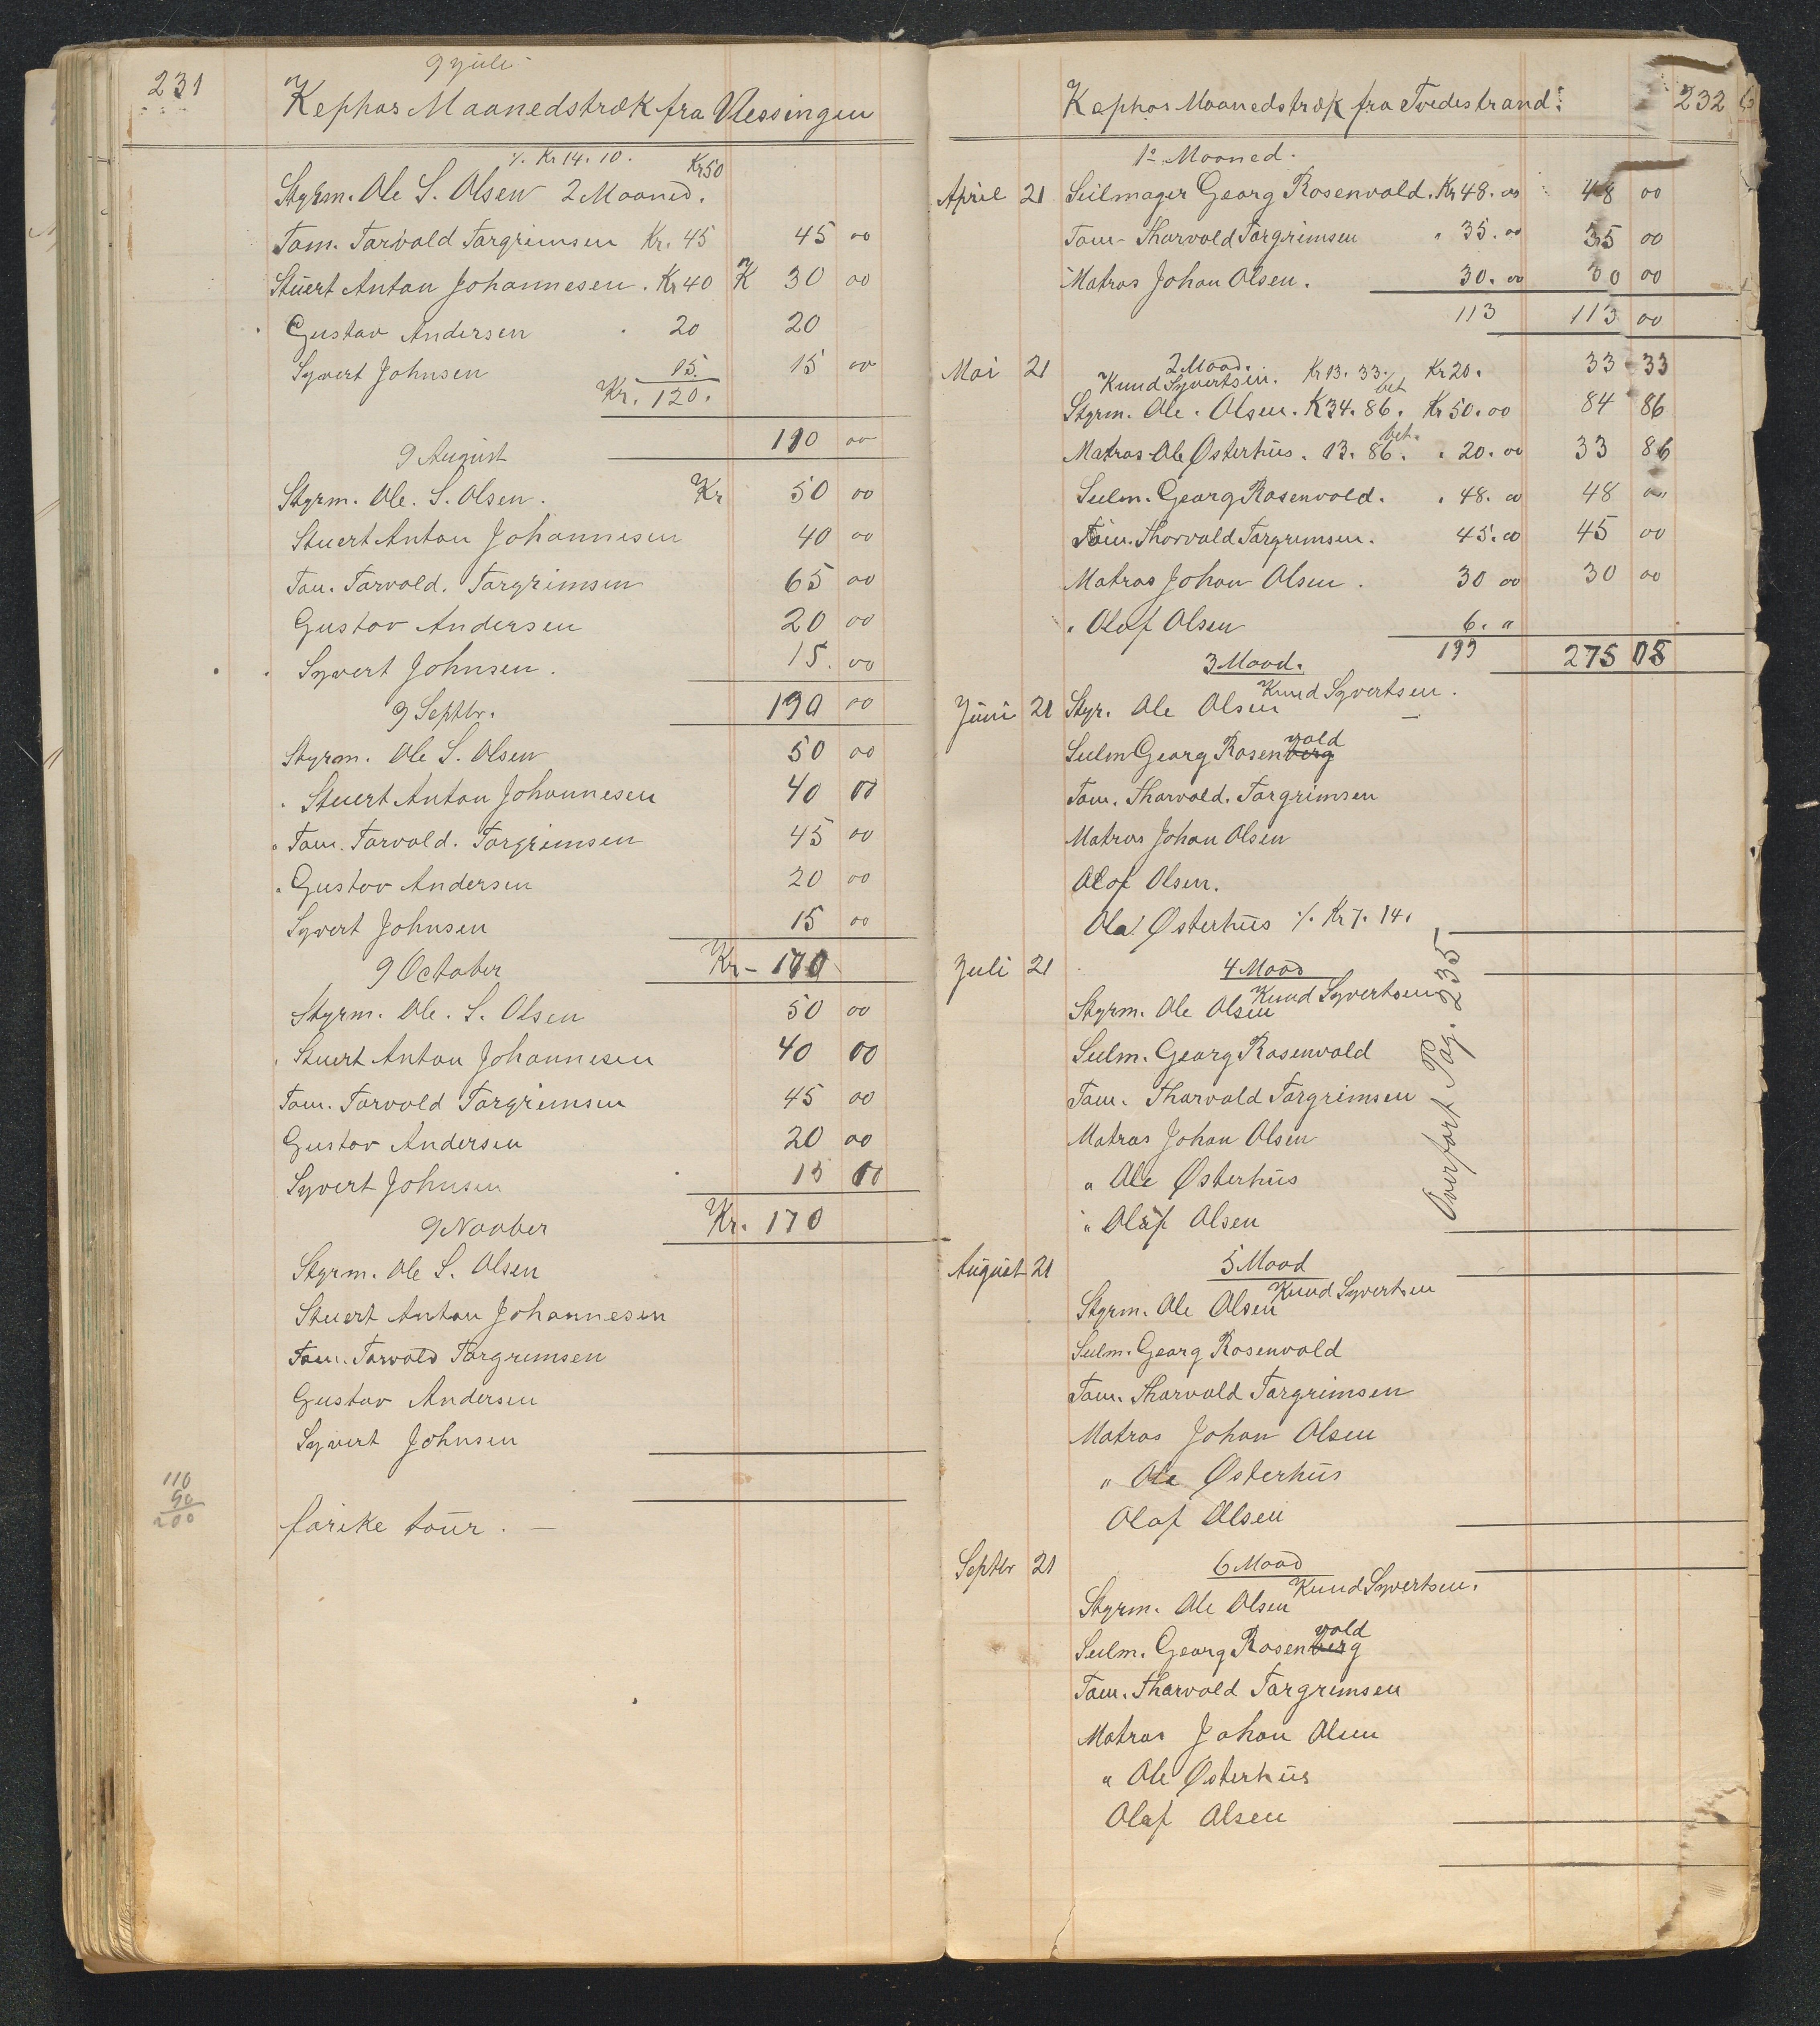 231
9 Juli
Kephas Maanedstræk fra Vlessingen
% Kr 14. 10. Kr 50
Styrm. Ole S. Olsen 2 Maaned.
Tøm. Tarvald Targrimsen Kr. 45 45 00
Stuert Anton Johannesen. Kr 40 K 30 00
Gustav Andersen 20 20
Syvert Johnsen 15. 15 00
Kr. 120.
110 00
9 August
Styrm. Ole. S. Olsen. Kr 50 00
Stuert Anton Johannesen 40 00
Tøm. Tarvald. Targrimsen 65 00
Gustav Andersen 20 00
Syvert Johnsen. 15. 00
190 00
9 Septbr.
Styrm. Ole S. Olsen 50 00
Stuert Anton Johannesen 40 00
Tøm. Tarvald. Targrimsen 45 00
Gustav Andersen 20 00
Syvert Johnsen 15 00
Kr - 170
9 October
Styrm. Ole. S. Olsen 50 00
Stuert Anton Johannesen 40 00
Tøm. Tarvald Targrimsen 45 00
Gustav Andersen 20 00
Syvert Johnsen 15 00
Kr. 170
9 Novber
Styrm. Ole S. Olsen
Stuert Anton Johannesen
Tøm. Tarvald Targrimsen
Gustav Andersen
Syvert Johnsen
110
90
200
tour. —
232
Kephas Maanedstræk fra Tvedestrand:
1ste Maaned.
April 21 Seilmager Georg Rosenvold. Kr 48. 00 48 00
Tøm. Tharvald Targrimsen " 35. 00 35 00
Matros Johan Olsen. 30. 00 30 00
113 113 00
2 Maad.
Mai 21 Knud Syvertsen. Kr 13. 33 % Kr 20. 33 33
bet
Styrm. Ole. Olsen. K 34. 86. Kr 50. 00 84 86
bet.
Matros Ole Østerhus. 13. 86. " 20. 00 33 86
Seilm. Georg Rosenvold. " 48. 00 48 00
Tøm. Tharvald Targrimsen. 45. 00 45 00
Matros Johan Olsen. 30 00 30 00
" Olaf Olsen 6. "
199 275 05
3 Maad.
Knud Syvertsen.
Juni 21 Styr. Ole Olsen —
vold
Seilm Georg Rosenberg
Tøm. Tharvald. Targrimsen
Matros Johan Olsen
Olaf Olsen.
Ole Østerhus % Kr 7. 14.
Juli 21 4 Maad
Knud Syvertsen
Styrm. Ole Olsen
Seilm. Georg Rosenvold
Tøm. Tharvald Targrimsen
Matros Johan Olsen
" Ole Østerhus
" Olaf Olsen
Overført Pag. 235
August 21 5 Maad
Knud Syvertsen
Styrm. Ole Olsen
Seilm. Georg Rosenvold
Tøm. Tharvald Targrimsen
Matros Johan Olsen
" Ole Østerhus
Olaf Olsen
Septbr 21 6 Maad
Knud Syvertsen.
Styrm. Ole Olsen
vold
Seilm. Georg Rosenberg
Tøm. Tharvald Targrimsen
Matros Johan Olsen
" Ole Østerhus
Olaf Olsen